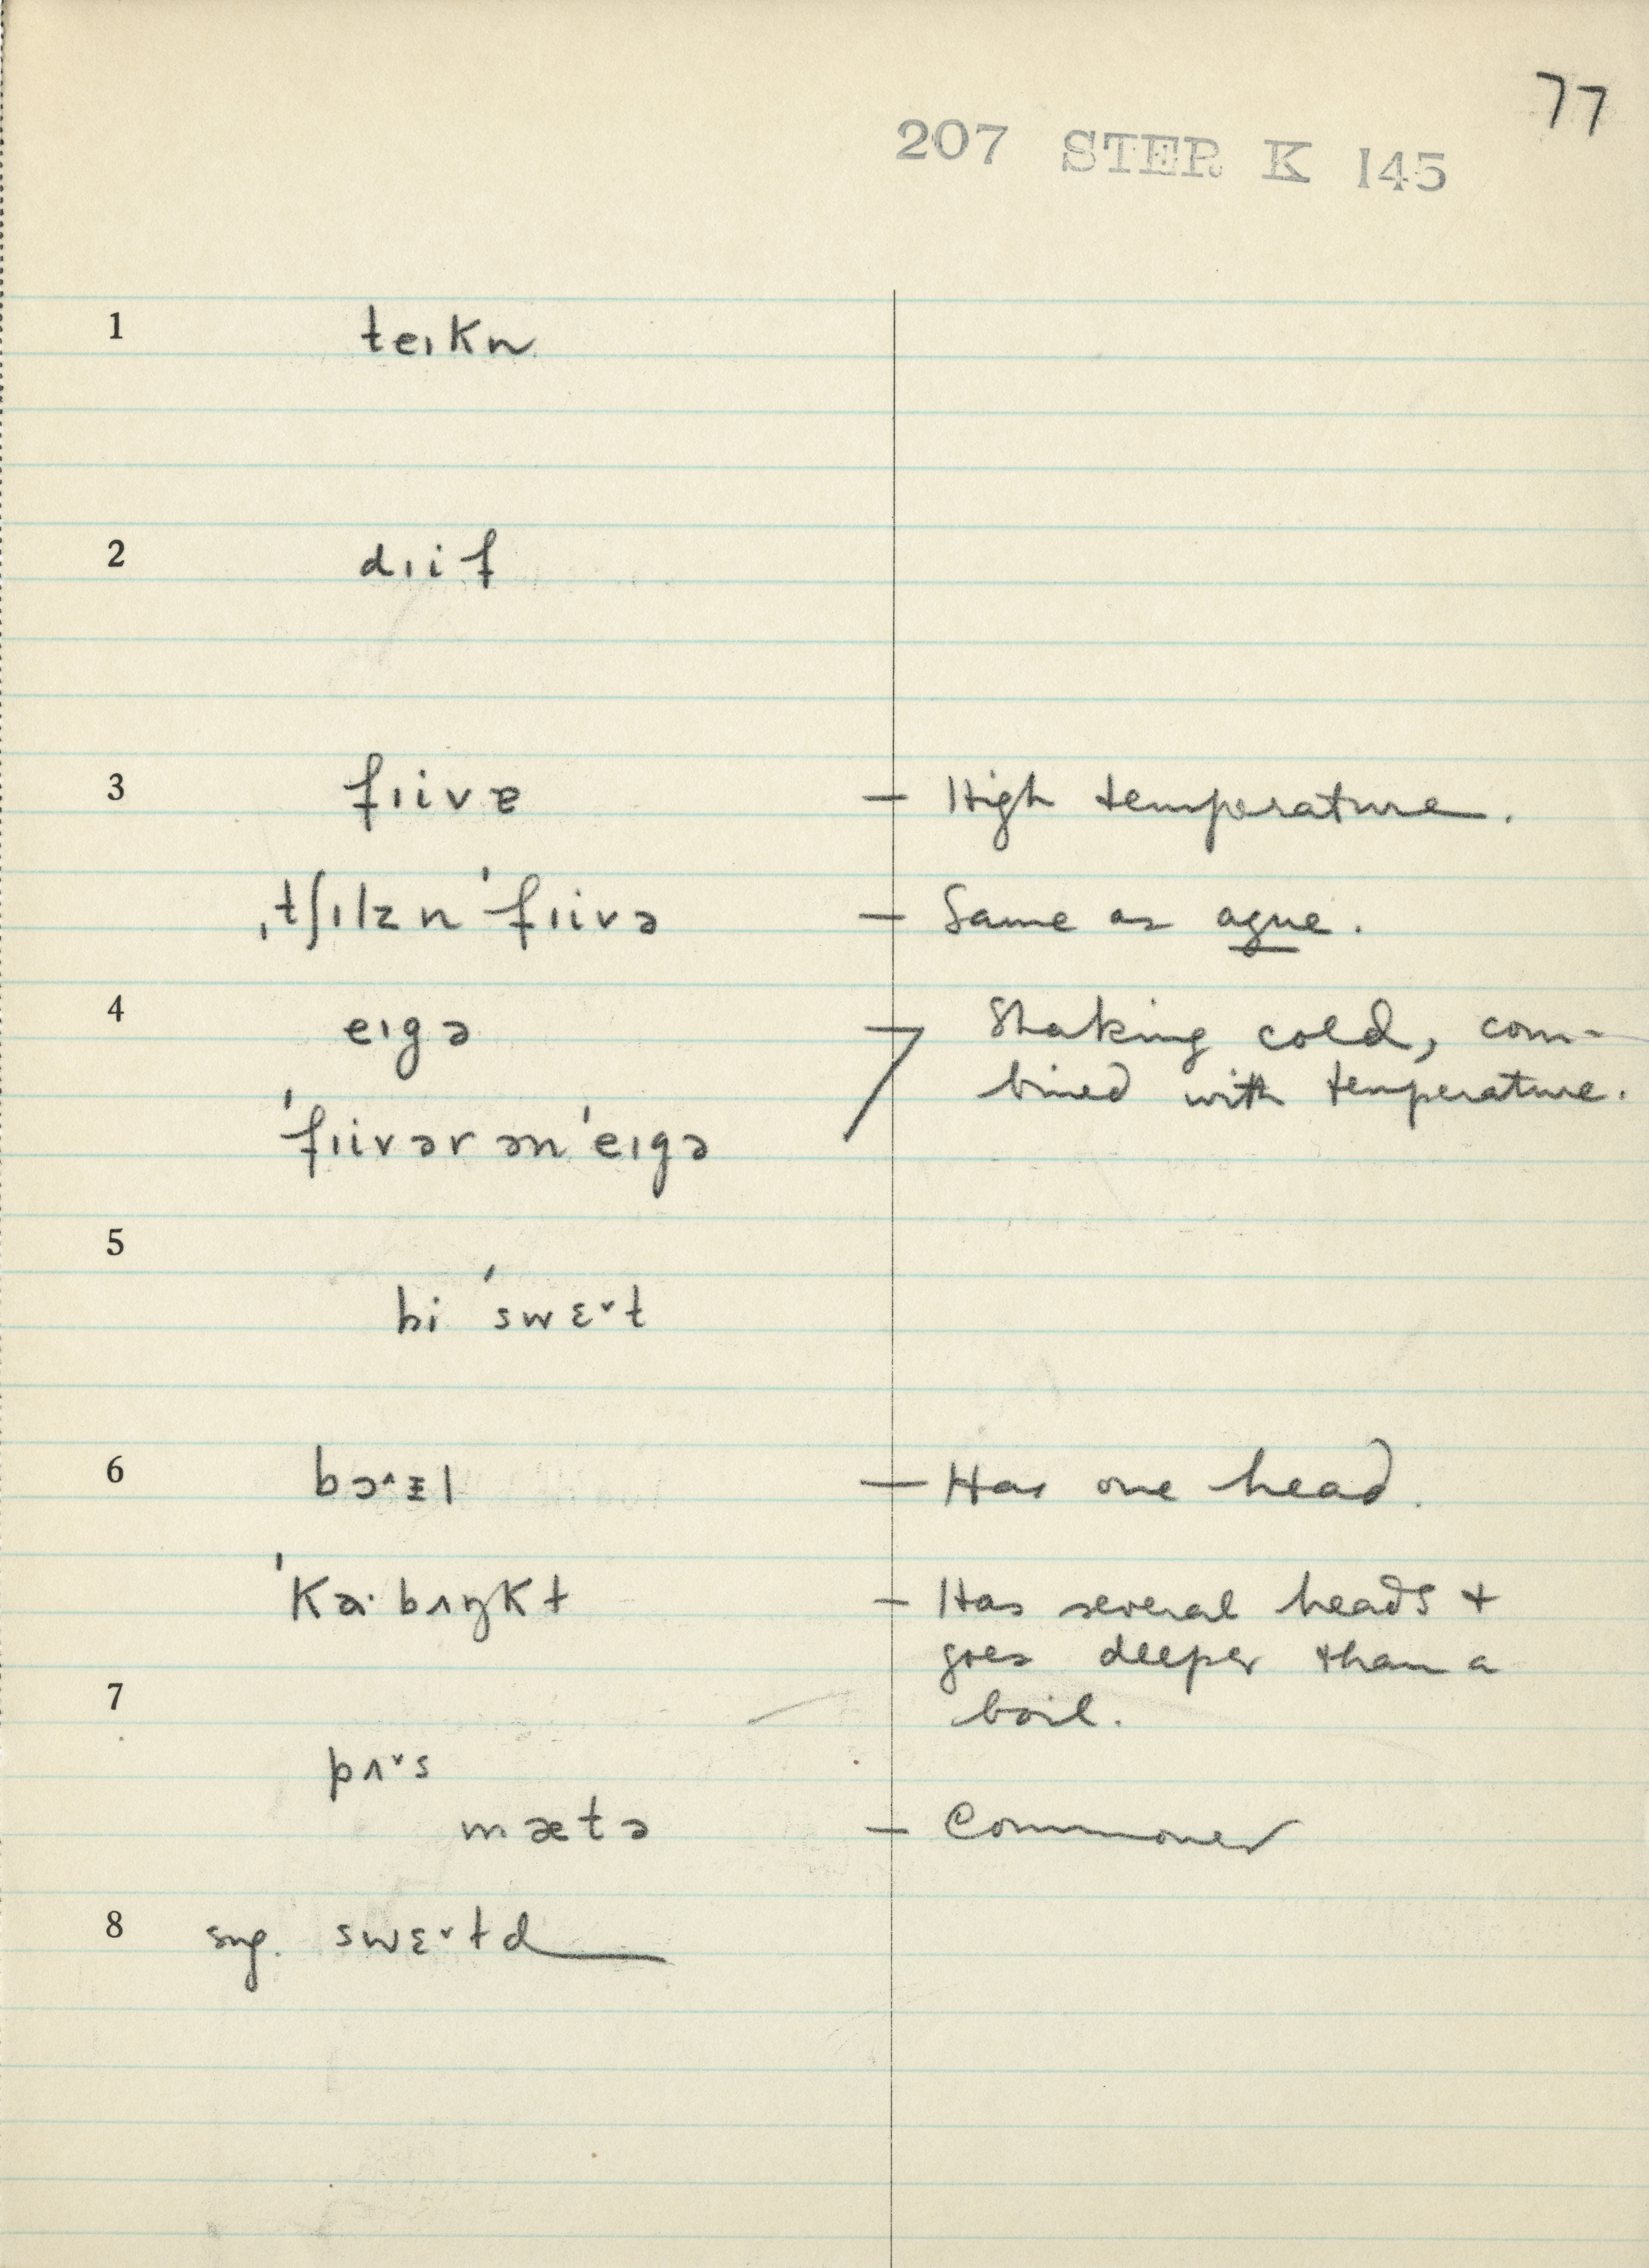 77
207 STER K 145
1 teɪkn
2 dɪif
3 fɪivɐ – High temperature.
ˌtʃɪlz n ˈfɪivə – Same as ague.
4 eɪgə – Shaking cold, com-
bined with temperature.
ˈfɪivər ən ˈeɪgə
5
hi ˈswɛ˅t
6 bɔ˄ɪl – Has one head.
ˈkɑ·bʌŋkt – Has several heads +
goes deeper than a
7 boil.
pʌ˅s
mætə – Commoner
8 sug. swɛ˅td